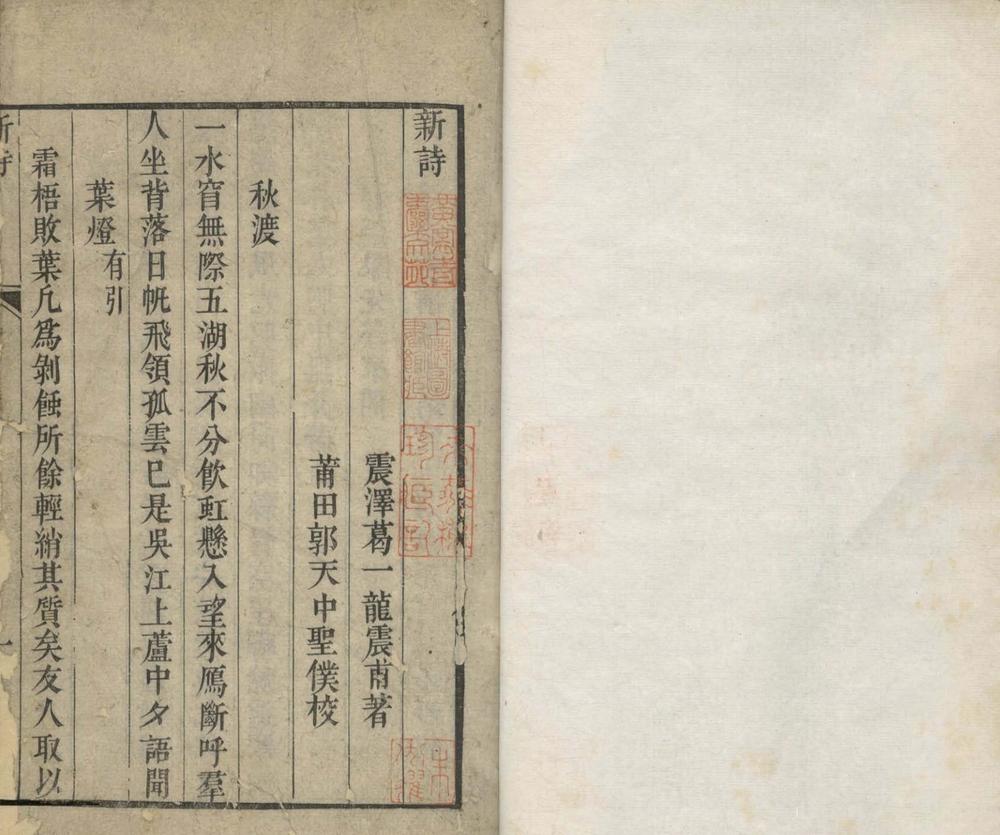 新詩
震澤葛一龍震甫著
莆田郭天中聖僕校
秋渡
一水窅無際五湖秋不分飲虹懸入望來鴈斷呼羣
人坐背落日帆飛領孤雲巳是吳江上蘆中夕語聞
葉燈有引
霜梧敗葉凡爲剝蝕所餘輕綃其質矣友人取以
上海圖書館藏